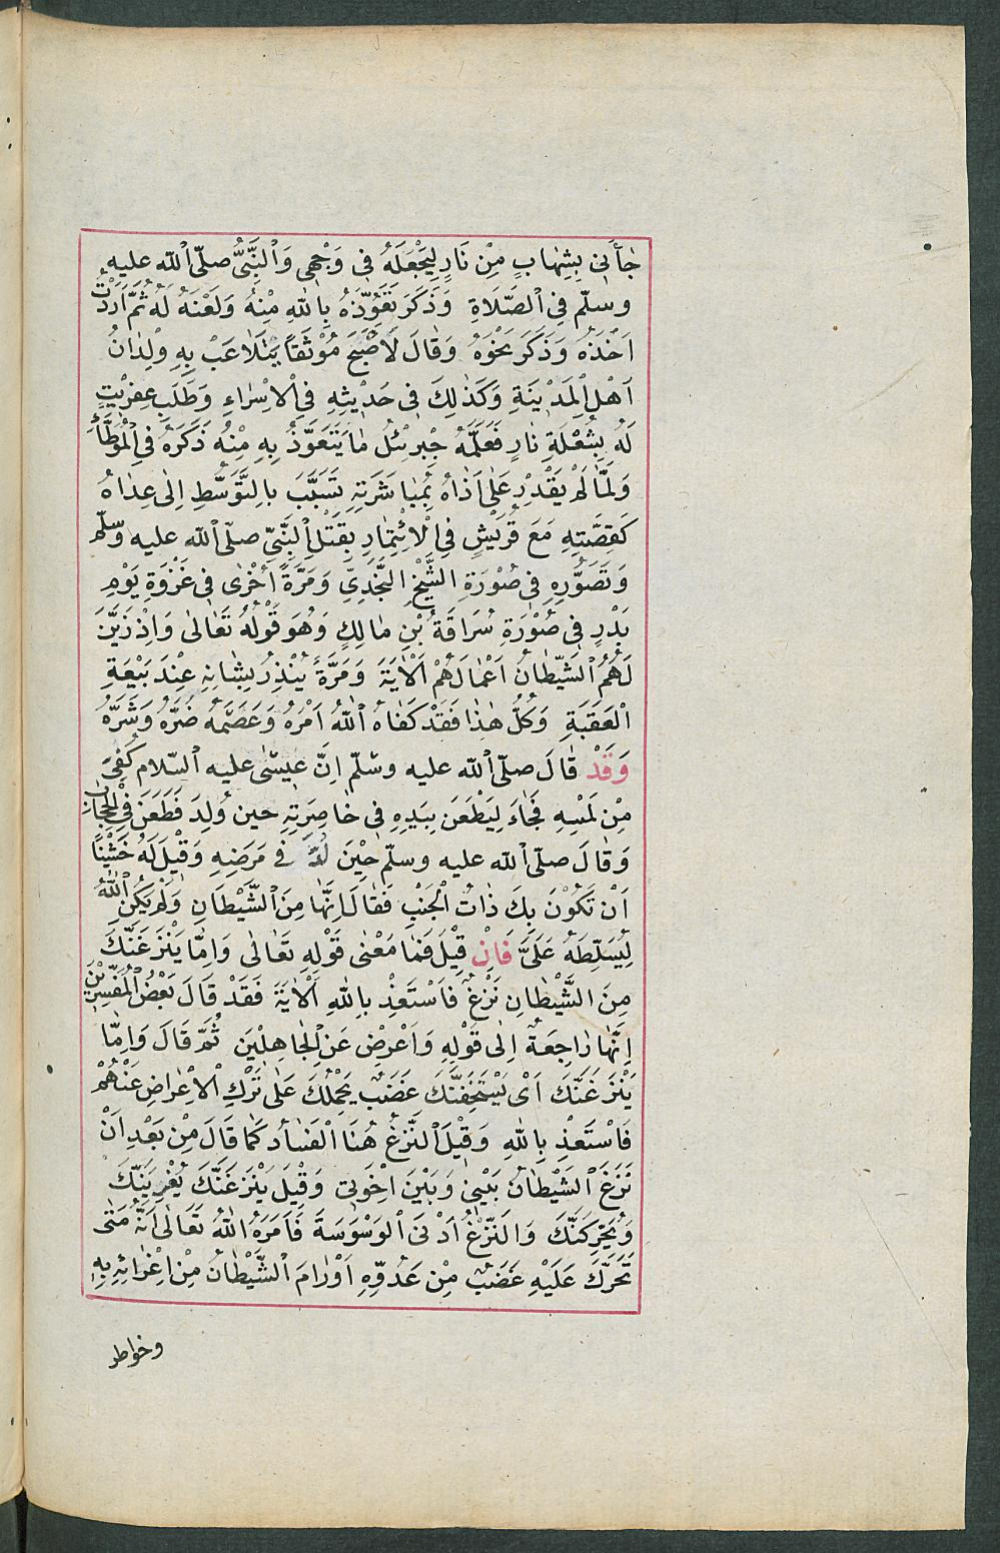 جَاۤءَنِى بِشِهَابٍ مِنْ نَارٍ لِيَجْعَلَهُ فِى وَجْهِى وَالنَّبِىُّ صلّى الله عليه
وسلّم فِى الصَّلَاةِ وَذَكَرَ تَعَوُّذَهُ بِاللهِ مِنْهُ وَلَعْنَهُ لَهُ ثُمَّ اَرَدْتُ
اَخْذَهُ وَذَكَرَ نَحْوَهُ وَقَالَ لَاَصْبَحَ مُوْثَقاً يَتَلَاعَبُ بِهِ وِلْدَانُ
اَهْلِ الْمَدِيْنَةِ وَكَذٰلِكَ فِى حَدِيْثِهِ فِى الْاِسْرَاءِ وَطَلَبِ عِفْرِيْتٍ
لَهُ بِشُعْلَةِ نَارٍ فَعَلَّمَهُ جِبْرِئِلُ مَا يَتَعَوَّذُ بِهِ مِنْهُ ذَكَرَهُ فِى الْمُوَطَّأِ
وَلَمَّا لَمْ يَقْدِرْ عَلٰى اَذَاهُ بِمُبَاشَرَتِهِ تَسَبَّبَ بِالتَّوَسُّطِ اِلٰى عِدَاهُ
كَقِصَّتِهِ مَعَ قُرَيْشٍ فِى الْاِئْتِمَارِ بِقَتْلِ النَّبِىِّ صلّى الله عليه وسلّم
وَتَصَوُّرِهِ فِى صُوْرَةِ الشَّيْخِ النَّجْدِيِّ وَمَرَّةً اُخْرٰى فِى غَزْوَةِ يَوْمِ
بَدْرٍ فِى صُوْرَةِ سُرَاقَةَ بْنِ مَالِكٍ وَهُوَ قَوْلُهُ تَعَالٰى وَاِذْ زَيَّنَ
لَهُمُ الشَّيْطَانُ اَعْمَالَهُمْ اَلْاٰيَةَ وَمَرَّةً يُنْذِرُ بِشَانِهِ عِنْدَ بَيْعَةِ
الْعَقَبَةِ وَكُلُّ هٰذَا فَقَدْ كَفَاهُ اللهُ اَمْرَهُ وَعَصَمَهُ ضَرَّهُ وَشَرَّهُ
وَقَدْ قَالَ صلّى الله عليه وسلّم اِنَّ عِيْسٰى عليه السّلام كُفِىَ
مِنْ لَمْسِهِ فَجَاءَ لِيَطْعَنَ بِيَدِهِ فِى خَاصِرَتِهِ حِين وُلِدَ فَطَعَنَ فِى الْحِجَابِ
وَقَالَ صلّى الله عليه وسلّم حِيْنَ لُدَّ فِى مَرَضِهِ وَقِيْلَ لَهُ خَشِيْنَا
اَنْ تَكُوْنَ بِكَ ذَاتُ الْجَنْبِ فَقَالَ اِنَّهَا مِنَ الشَّيْطَانِ وَلَمْ يَكُنِ اللهُ
لِيُسَلِّطَهُ عَلَىَّ فَاِنْ قِيْلَ فَمَا مَعْنٰى قَوْلِهِ تَعَالٰى وَاِمَّا يَنْزَغَنَّكَ
مِنَ الشَّيْطَانِ نَزْغٌ فَاسْتَعِذْ بِاللهِ اَلْاٰيَةَ فَقَدْ قَالَ بَعْضُ الْمُفَسِّرِيْنَ
اِنَّهَا رَاجِعَةٌ اِلٰى قَوْلِهِ وَاَعْرِضْ عَنِ الْجَاهِلِيْنَ ثُمَّ قَالَ وَاِمَّا
يَنْزَغَنَّكَ اَىْ يَسْتَخِفَّنَّكَ غَضَبٌ يَحْمِلُكَ عَلٰى تَرْكِ الْاِعْرَاضِ عَنْهُمْ
فَاسْتَعِذْ بِاللهِ وَقِيْلَ النَّزْغُ هُنَا الْفَسَادُ كَمَا قَالَ مِنْ بَعْدِ اَنْ
نَزَغَ الشَّيْطَانُ بَيْنِىْ وَبَيْنَ اِخْوَتِى وَقِيْلَ يَنْزَغَنَّكَ يُغْرِيَنَّكَ
وَيُحَرِّكَنَّكَ وَالنَّزْغُ اَدْنَى الْوَسْوَسَةِ فَاَمَرَهُ اللهُ تَعَالٰى اَنَّهُ مَتٰى
تَحَرَّكَ عَلَيْهِ غَضَبٌ مِنْ عَدُوِّهِ اَوْ رَامَ الشَّيْطَانُ مِنْ اِغْرَائِهِ بِهِ
وخواطر